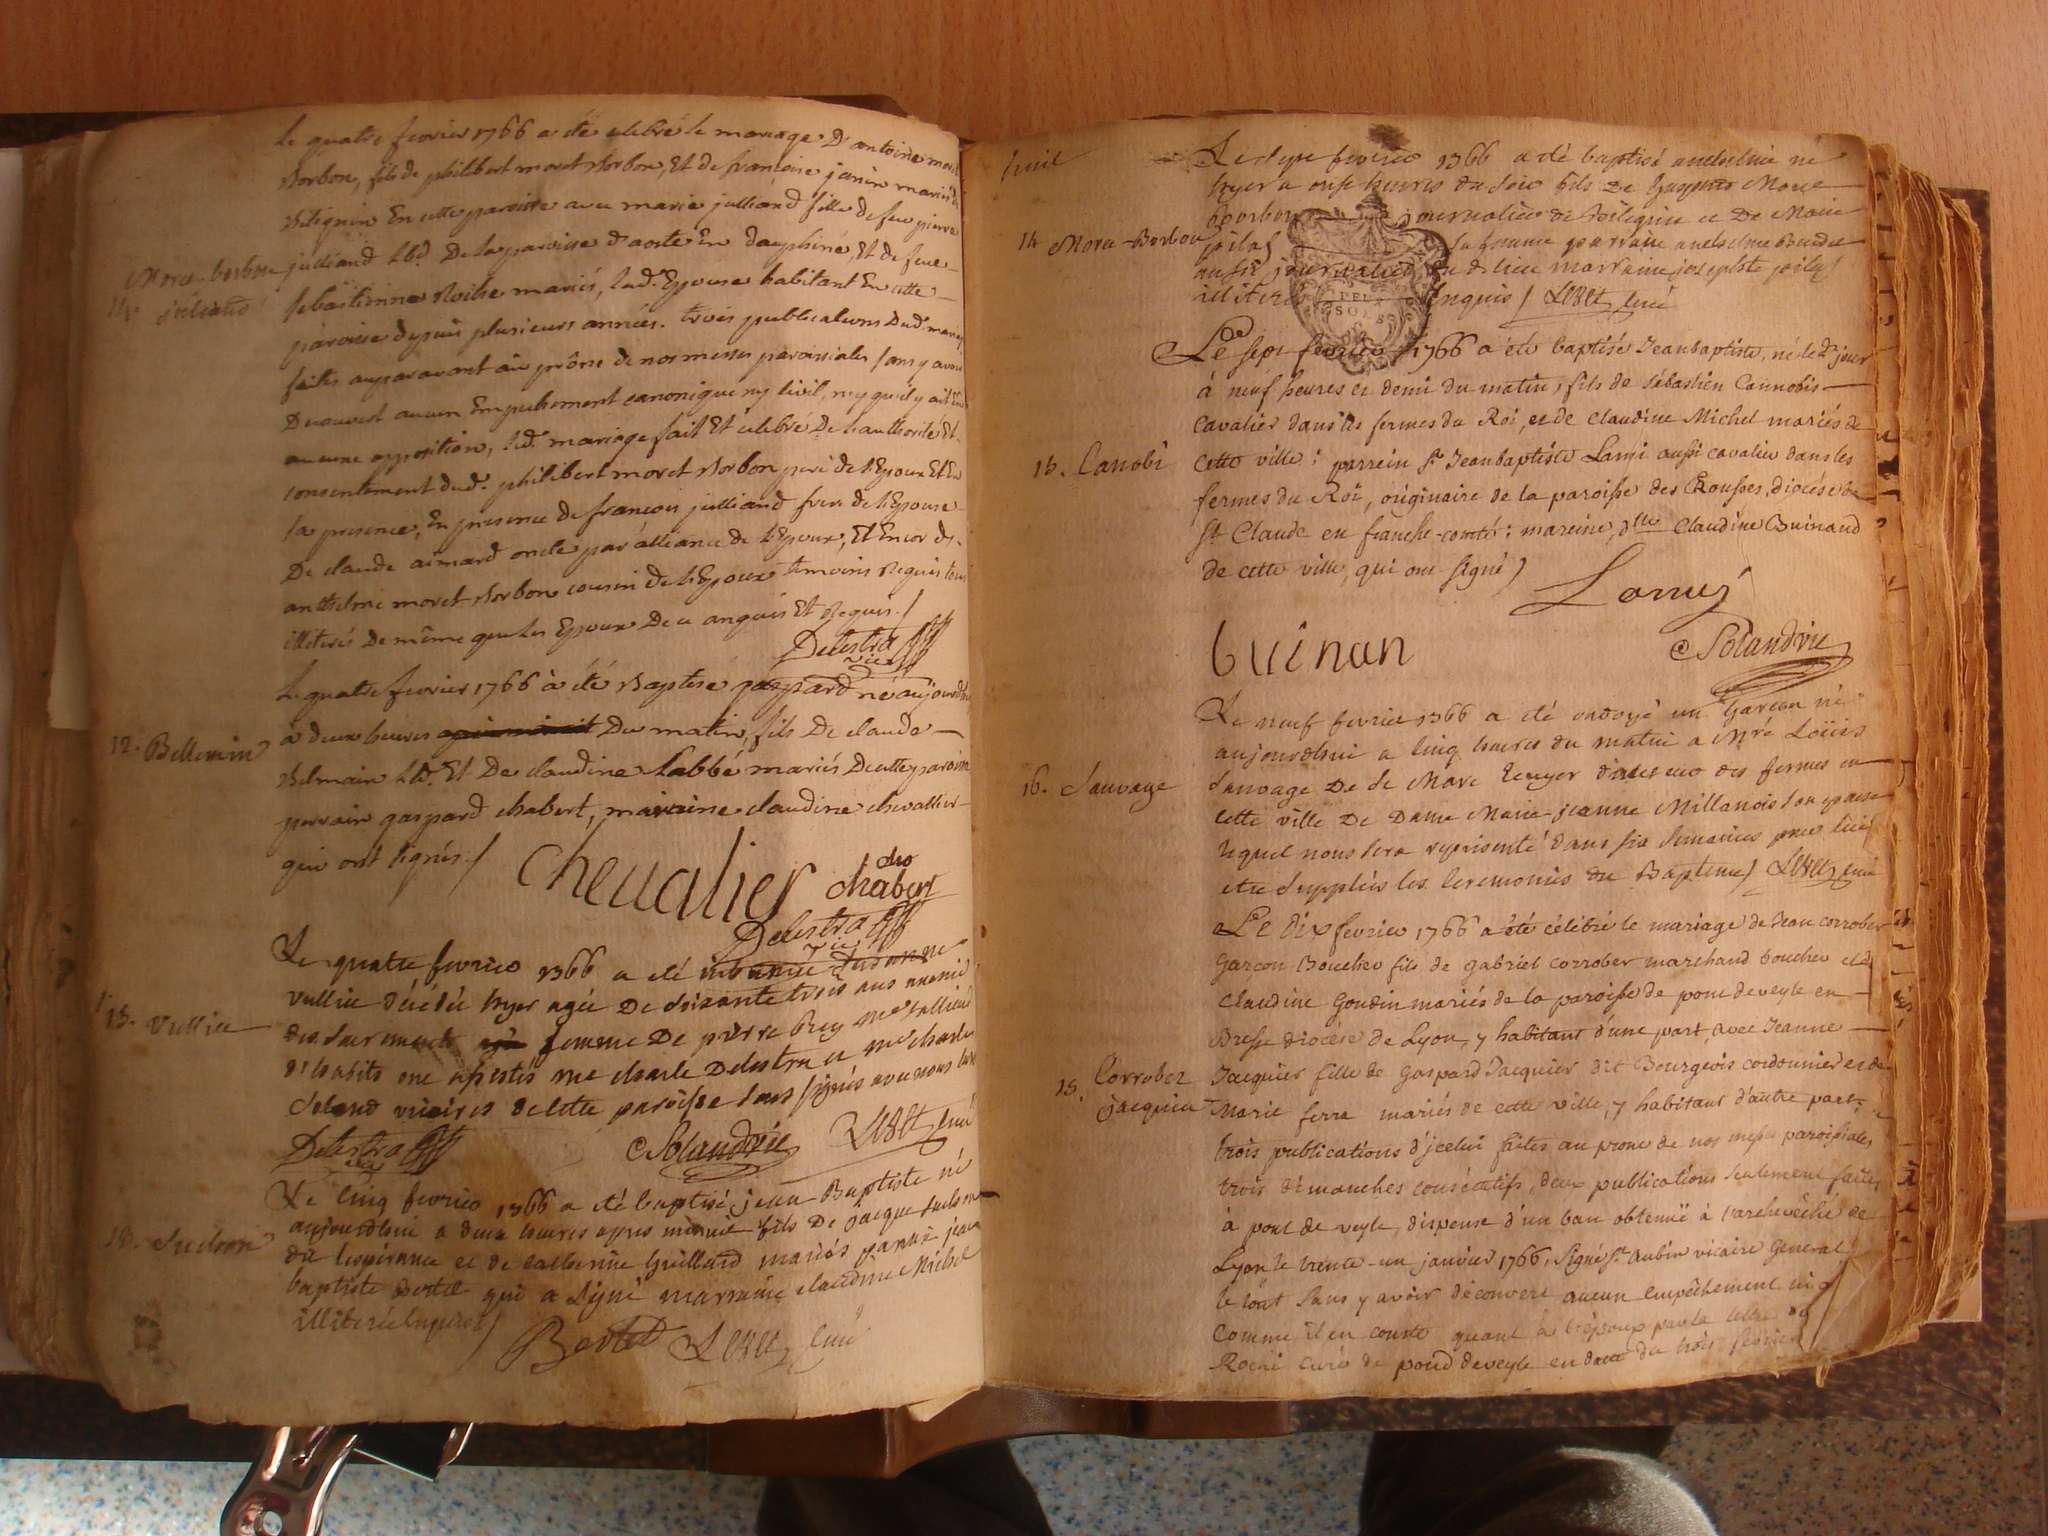 Le quatre fevrier 1766 a été celebré le mariage D'antoine moret
Borbon, fils de philibert moret Borbon, Et de francoise janin mariés de
En cette paroisse avec marie julliand fille de feu pierre
Moret-borbon
julliand
julliand De la paroisse d'aoste En dauphiné, Et de feue
sebastienne mariés, lad. Epouse habitant En cette
paroisse depuis plusieurs années. trois publications Dud. mariage
faites auparavant au prône de nos messes paroissiales sans y avoir
Decouvert aucun Empechement canonique ny civil, ny qu'il y ait eu
aucune opposition, led. mariage fait Et celebré De l'authorité Et
consentement dud. philibert moret Borbon pere de l'Epoux Et En
sa presence, En presence de francois julliand frere de l'Epouse
De claude aimard oncle par alliance de l'Epoux, Et Encor de
anthelme moret Borbon cousin de l'Epoux temoins Requis tous
illiterés De même que les Epoux De ce anquis Et Requis./
Delestra
vic.
Le quatre fevrier 1766 à été Baptisé gaspard né aujourdhuy
12. Bellemin
à deux heures Du matin, fils De claude
Belmain Et De claudine Labbé mariés De cette paroisse
parrain gaspard chabert, maraine claudine chevallier
qui ont signés./
Chevalier
chabert
Delestra
vic.
Le quatre fevrier 1766 a été inhumée Susanne
13. Vullin
decedée hyer agée De soixante trois ans munie
des sacrements femme De pierre Rey Me tallieur
D'habits ont assistés mre charle Delestra et mre charle
Soland vicaires de cette paroisse sous signés avec nous curé
Delestra
vic.
Solandvic
Levet curé
Le cinq fevrier 1766 a été baptisé jean-Baptiste né
aujourdhui a deux heures apres minuit fils De jacque
13. Judson
dit lespérance et de catherine Guilland mariés parrain jean
baptiste Bertet qui a signé marraine claudine Michel
illiterée enquise/
Bertet Levet curé
huit
Le sept fevrier 1766 a été baptisé anthelme né
hyer a onse heures du soir fils De Moret
14 Moret-Borbon
bourbon journalier de et De Marie
sa femme parrain anthelme
aussi journalier du d. lieu marraine josephte
enquis/ Levet curé
PETIT
SOLS
Le sept fevrier 1766 a été baptisé Jean baptiste, né led. jour
à neuf heures et demi du matin, fils de sébastien Cannobis
cavalier dans les fermes du Roi, et de Claudine Michel mariés de
15. Canobi
cette ville: parrein sr. Jean baptiste Lami aussi cavalier dans les
fermes du Roi, originaire de la paroisse des Rousses, diocése de
st Claude en franche-comté: mareine dlle Claudine Buinand
de cette ville, qui ont signé)
Lamy
buinan
Solandvic
Le neuf fevrier 1766 a été ondoyé un Garcon né
aujourdhui a cinq heures du matin a Mre Loüis
16. Sauvage
Sauvage De St Marc Ecuyer directeur des fermes en
cette ville De Dame Marie-jeanne Millanois son epouse
lequel nous sera representé dans six semaines pour lui
etre Suppléés les ceremonies du Bapteme/ Levet curé
Le Dix fevrier 1766 a été célébré le mariage de Jean corrober
Garcon Boucher fils de gabriel corrober marchand boucher et de
Claudine Goudin mariés de la paroisse de pont deveyle en
Bresse diocése de Lyon, y habitant d'une part, avec Jeanne
15. Corrober
jacquier
Jacquier fille de Gaspard Jacquier dit Bourgeois cordonnier et de
Marie ferra mariés de cette ville, y habitant d'autre part;
trois publications d'jcelui faites au prone de nos messes paroissiales
trois dimanches consécutifs, deux publications seulement faites
à pont de veyle, dispense d'un ban obtenuë à l'archevêché de
Lyon le trente-un janvier 1766, signé st. Aubin vicaire General
le tout sans y avoir découvert aucun empêchement
comme il en conste quant à l'époux par la lettre de
curé de pond deveyle en date du trois fevrier